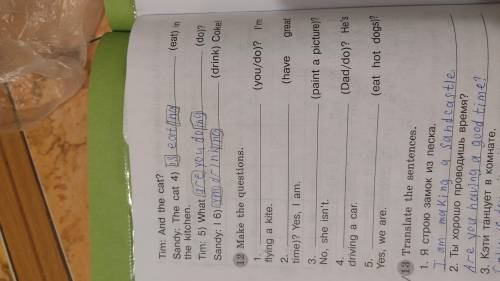 Tim: And the cat?
Sandy: The cat 4) is eating (eat) in
the kitchen.
Tim: 5) What are you doing (do)?
Sandy: I 6) (drink) Coke!
12 Make the questions.
1. (you/do)? I'm
flying a kite.
2. (have great
time)? Yes, I am.
3. (paint a picture)?
No, she isn't.
4. (Dad/do)? He's
driving a car.
5. (eat hot dogs)?
Yes, we are.
13 Translate the sentences.
1. Я строю замок из песка.
I am making a sandcastle
2. Ты хорошо проводишь время?
Are you having a good time?
3. Кэти танцует в комнате.